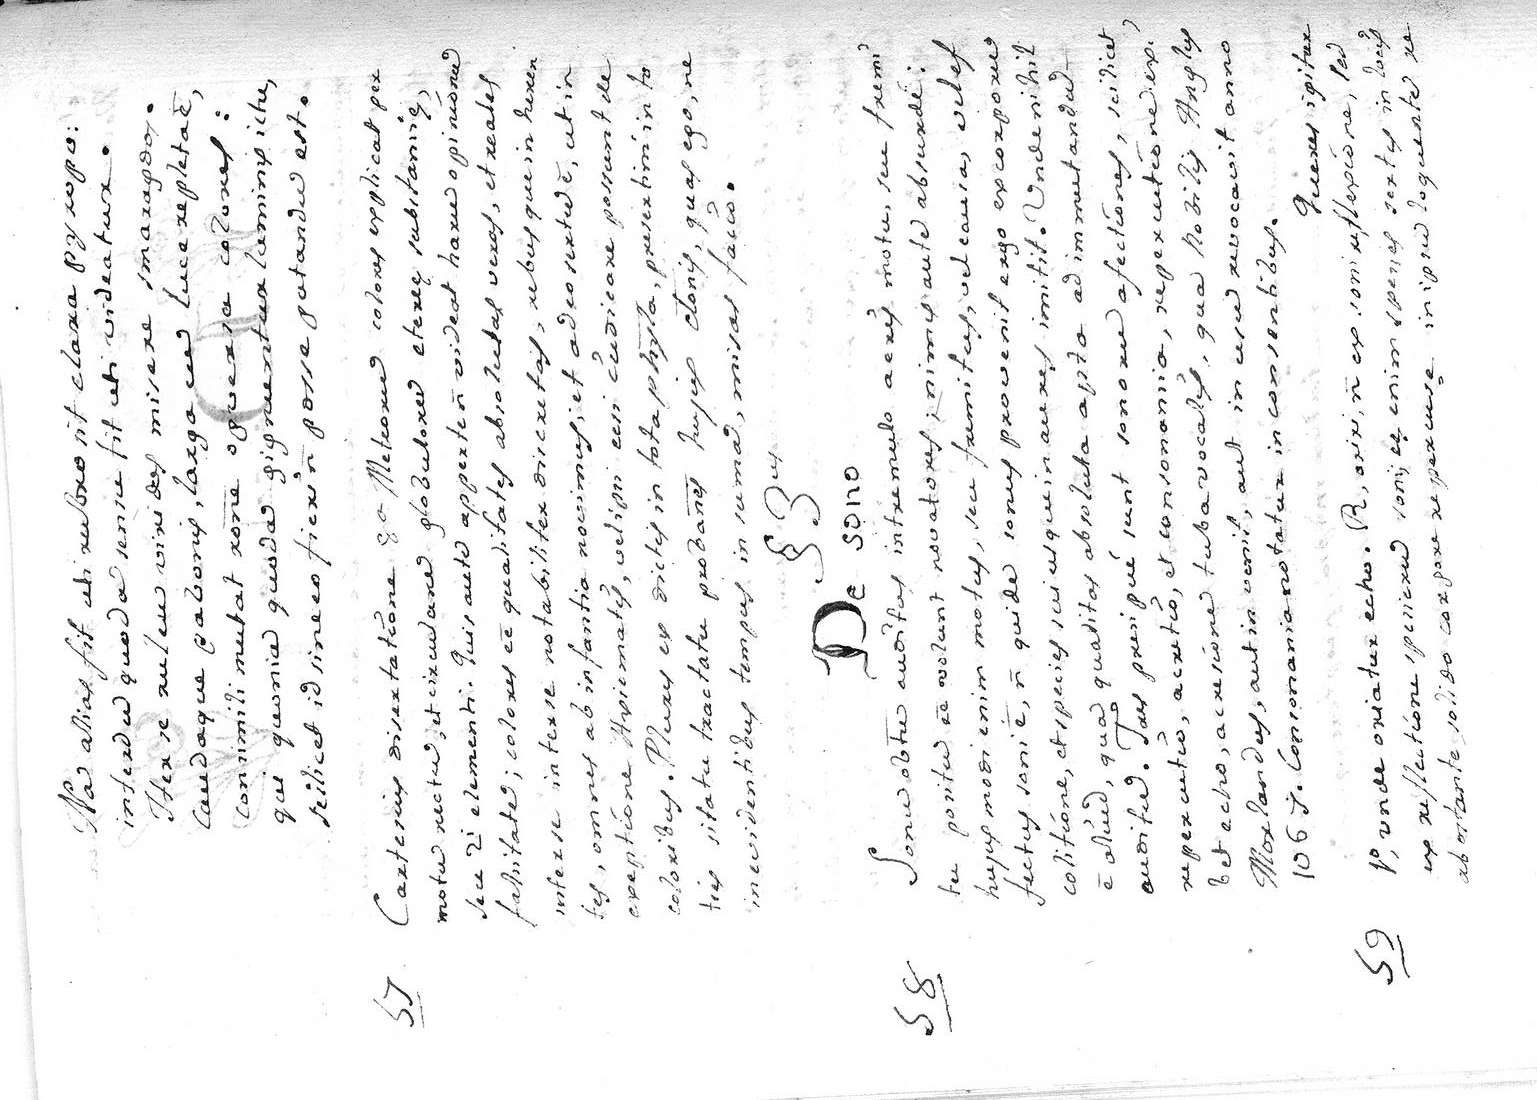 Nā alias fit ubi rubro sit clara pyropo:
interdū quodā sensu fit uti videatur.
Iter se ruleu virides misere smaragdos.
Caudaque pabonis, larga cū luce repletaē,
consimili mutat rōne oversa colores:
qui quonia quodā gignuntur luminis ictu,
scilicet id sine eo fieri ñ posse putandū est.
57 Cartesius disertatione 8a Meteoru colores explicat per
motū rectū, et circularē globuloru etereę substantię,
seu 2i elementi. Quis autē aperte ñ videat hanc opinionē
falsitatē; colores eē qualitates absolutas veras, et reales
inter se inter se notabiliter discretas, rebusque in heren
tes, omnes ab infantia novimus, et adeo certū ē, ut in
exceptione Apicmatis, vel ipsi ceci iudicare possunt de
coloribus. Plura ex dictis in tota physica, presertim in to
ties sitatu tractatu probans hujus clonis, quas ego, ne
in evidentibus tempus in sumā, missas facio.
§ 3us
De sono
58 Sonū obtū auditus in tremulo aeris motu, seu fremi
tu positū eē volunt novatores; nimis autē absurde:
hujusmodi enim motus, seu fremitus, vel causa, vel ef
fectus soni ē, ñ quidē sonus provenit ergo ex corporū
colitione, et species sui usque in aures imitit. Unde nihil
ē aliud, quā qualitas absoluta apta ad immutandū
auditū. Tres precipue sunt sonore afectiones, scilicet
repercutio, acretio, et consonantia, repercutione ex,
bet echo, acresione tuba vocalis, qua nobilis Anglus
Morlandus, aut in venit, aut in usū revocavit anno
1067. Consonantia notatur in consentibus.
Queres igitur
59 1º, unde oriatur echo. R, oriri, ñ ex soni reflexione, sed
ex reflectione specierū soni, eę enim species sextus in locis
abstante solido corpore repercusę in ipsū loquentē re